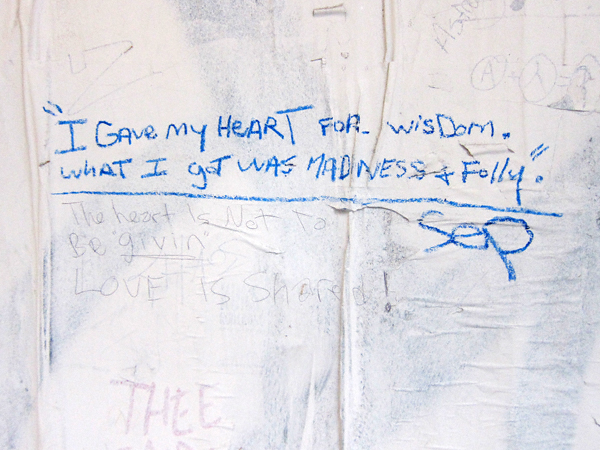 "I GAVE my HEART FOR wisDom.
WHAT I got WAS MADNESS & Folly".
Sep
The heart Is Not To
Be "givin"
LOVE IS Shared!
THEE